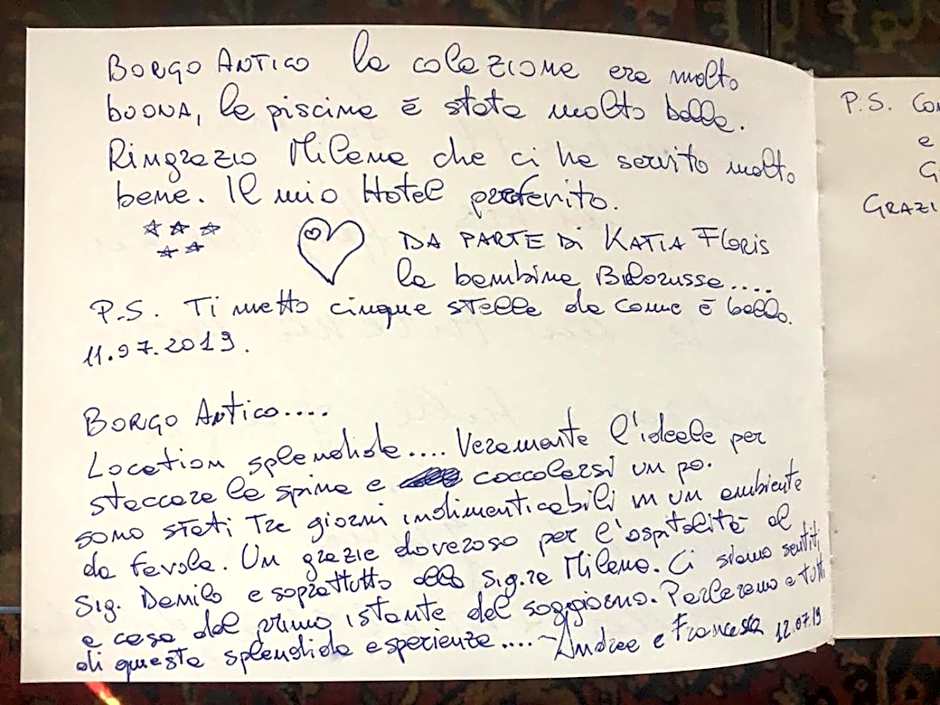 BORGO ANTICO la colazione era molto
buona, la piscina è stata molto bella.
Ringrazio Milena che ci ha servito molto
bene. Il mio Hotel preferito.
DA PARTE DI KATIA FLORIS
la bambina Bielorussa....
P.S. Ti metto cinque stelle da come è bello.
11.07.2019.
BORGO ANTICO....
Location splendida.... Veramente l'ideale per
staccare la spina e coccolarsi un po.
sono stati tre giorni indimenticabili in un ambiente
da favola. Un grazie doveroso per l'ospitalità al
Sig. Danilo e soprattutto alla Sig.ra Milena. Ci siamo sentiti
a casa dal primo istante del soggiorno. Parleremo a tutti
di questa splendida esperienza.... ~Andrea e Francesca 12.07.19
P.S. Con
e
G
GRAZI